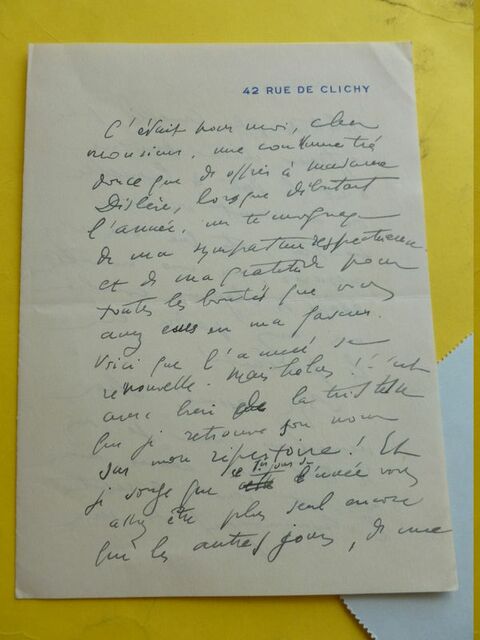 42 RUE DE CLICHY
C'était pour moi, cher
monsieur, une coutume très
douce que d'offrir à madame
Dislère, lorsque débutait
l'année, un témoignage
de ma sympathie respectueuse
et de ma gratitude pour
toutes les bontés que vous
avez eues en ma faveur.
Voici que l'année se
renouvelle. Mais hélas ! c'est
avec bien de la tristesse
que je retrouve son nom
sur mon répertoire ! Et
je songe que ce 1er jour de l'année vous
allez être plus seul encore
que les autres jours, de une